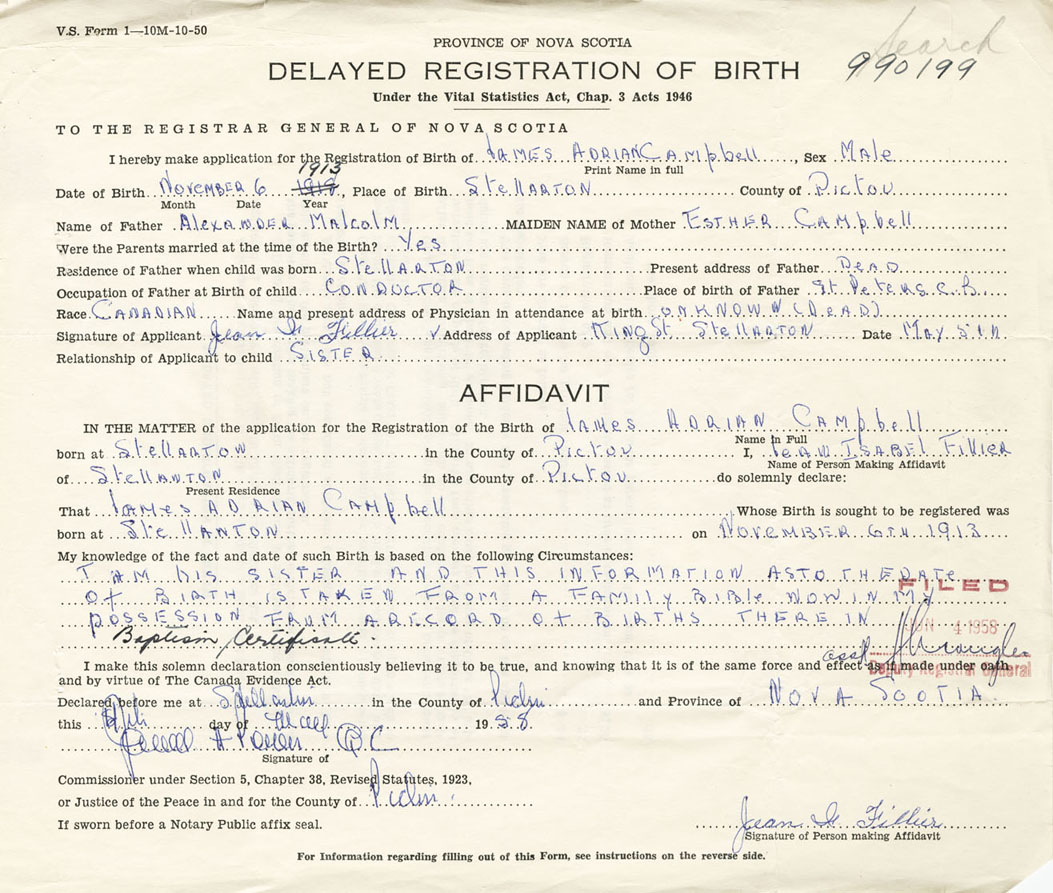 V.S. Form 1—10M-10-50
Search
990199
PROVINCE OF NOVA SCOTIA
DELAYED REGISTRATION OF BIRTH
Under the Vital Statistics Act, Chap. 3 Acts 1946
TO THE REGISTRAR GENERAL OF NOVA SCOTIA
I hereby make application for the Registration of Birth of JAMES ADRIAN CAMpbell, Sex MALE
Print Name in full
1913
Date of Birth NOVEMBER 6, Place of Birth STELLARTON County of PICTOU
Month Date Year
Name of Father AlexANDER MALCOLM MAIDEN NAME of Mother ESTHER CAMpbell
Were the Parents married at the time of the Birth? Yes
Residence of Father when child was born STellARTON Present address of Father DEAD
Occupation of Father at Birth of child CONDUCTOR Place of birth of Father St. PETERS C.B.
Race CANADIAN Name and present address of Physician in attendance at birth UNKNOWN (DEAD)
Signature of Applicant Jean I. Fillier ✓ Address of Applicant KING ST. STellARTON Date MAY 5TH
Relationship of Applicant to child SISTER
AFFIDAVIT
IN THE MATTER of the application for the Registration of the Birth of JAMES ADRIAN CAMpbell
Name in Full
born at STellARTON in the County of PICTOU I, JEAN ISABEL FILLIER
Name of Person Making Affidavit
of STEllARTON in the County of PICTOU do solemnly declare:
Present Residence
That JAMES ADRIAN CAMpbell Whose Birth is sought to be registered was
born at STellARTON on NOVEMBER 6TH 1913
My knowledge of the fact and date of such Birth is based on the following Circumstances:
I AM his SISTER AND THIS INFORMATION AS TO THE DATE
Of BIRTH IS TAKEN FROM A FAMILY BIBLE NOW IN MY
POSSESSION FROM A RECORD Of BIRTHS THERE IN
Baptism Certificate.
FILED
JUN 4 1958
Deputy Registrar General
I make this solemn declaration conscientiously believing it to be true, and knowing that it is of the same force and effect as if made under oath
and by virtue of The Canada Evidence Act.
Declared before me at Stellarton in the County of Pictou and Province of NOVA SCOTIA
this day of May 1958
Q C
Signature of
Commissioner under Section 5, Chapter 38, Revised Statutes, 1923,
or Justice of the Peace in and for the County of Pictou
If sworn before a Notary Public affix seal.
Jean I. Fillier
Signature of Person making Affidavit
For Information regarding filling out of this Form, see instructions on the reverse side.